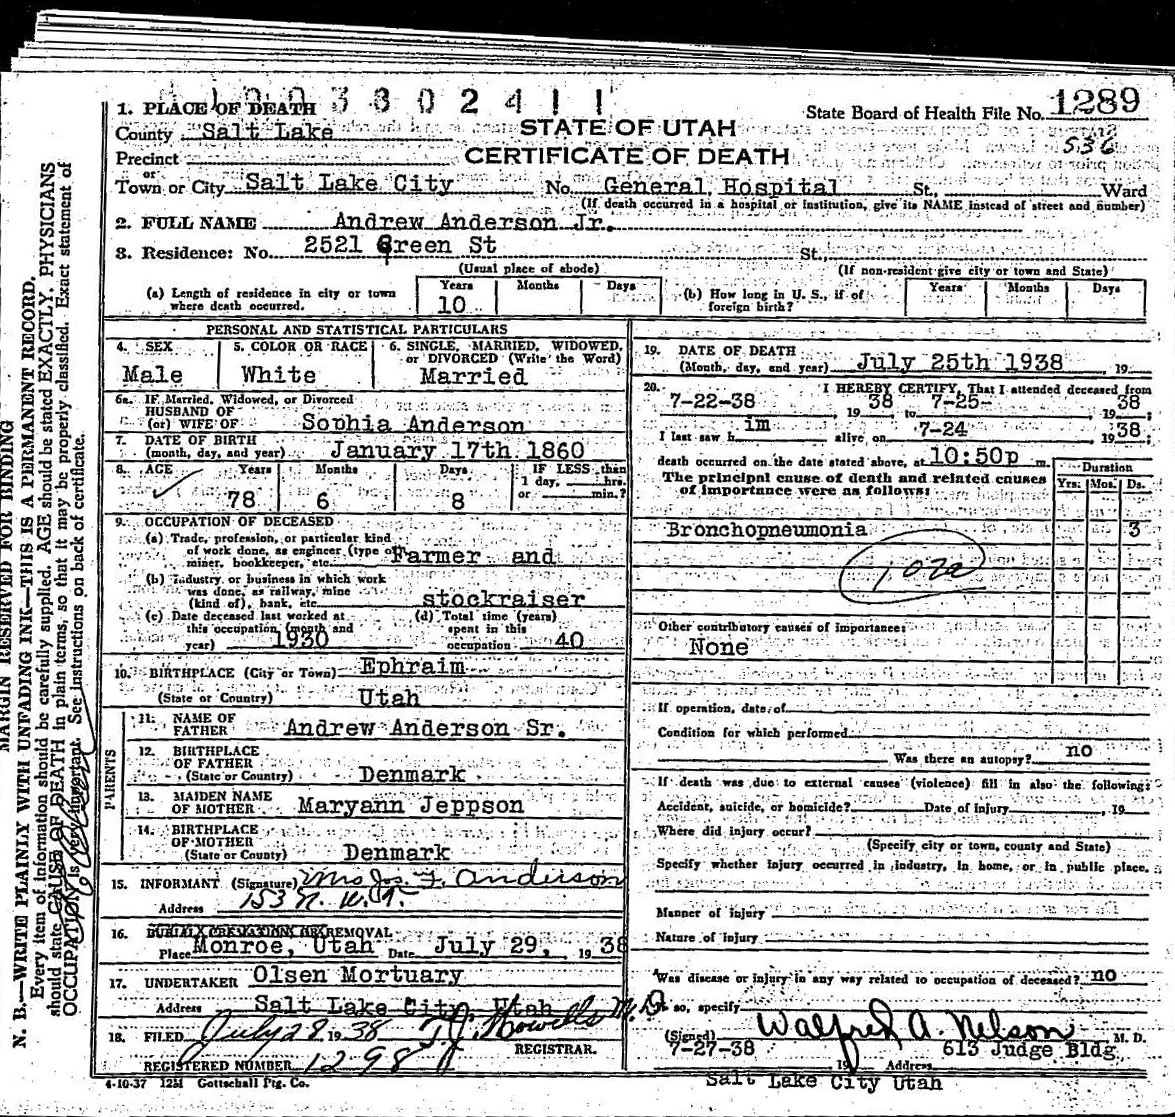 1 0 0 3 8 0 2 4 1 1
1. PLACE OF DEATH
State Board of Health File No. 1289
County Salt Lake
STATE OF UTAH
536
Precinct
CERTIFICATE OF DEATH
or
Town or City Salt Lake City No. General Hospital St., Ward
(If death occurred in a hospital or institution, give its NAME instead of street and number)
2. FULL NAME Andrew Anderson Jr.
3. Residence: No. 2521 Green St St.,
(Usual place of abode) (If non-resident give city or town and State)
(a) Length of residence in city or town where death occurred. Years 10 Months Days
(b) How long in U. S., if of foreign birth? Years Months Days
PERSONAL AND STATISTICAL PARTICULARS
4. SEX Male
5. COLOR OR RACE White
6. SINGLE, MARRIED, WIDOWED, or DIVORCED (Write the Word) Married
6a. IF Married, Widowed, or Divorced
HUSBAND OF
(or) WIFE OF Sophia Anderson
7. DATE OF BIRTH
(month, day, and year) January 17th 1860
8. AGE Years 78 Months 6 Days 8 IF LESS than 1 day, hrs. or min.?
9. OCCUPATION OF DECEASED
(a) Trade, profession, or particular kind
of work done, as engineer (type of)
miner, bookkeeper, etc. Farmer and
(b) Industry or business in which work
was done, as railway, mine
(kind of), bank, etc. stockraiser
(c) Date deceased last worked at
this occupation (month and
year) 1930
(d) Total time (years)
spent in this
occupation 40
10. BIRTHPLACE (City or Town) Ephraim
(State or Country) Utah
PARENTS
11. NAME OF
FATHER Andrew Anderson Sr.
12. BIRTHPLACE
OF FATHER
(State or Country) Denmark
13. MAIDEN NAME
OF MOTHER Maryann Jeppson
14. BIRTHPLACE
OF MOTHER
(State or County) Denmark
15. INFORMANT (Signature) Mrs Jos. F. Anderson
Address 153 N. W. T.
16. BURIAL CREMATION OR REMOVAL
Place Monroe, Utah Date July 29, 1938
17. UNDERTAKER Olsen Mortuary
Address Salt Lake City, Utah
18. FILED July 28 1938 T. J. Howells M.D.
REGISTRAR.
REGISTERED NUMBER 1298
4-10-37 12M Gottschall Ptg. Co.
19. DATE OF DEATH
(Month, day, and year) July 25th 1938 19
20. I HEREBY CERTIFY, That I attended deceased from
7-22-38 19 38 to 7-25- 19 38;
I last saw h im alive on 7-24 19 38
death occurred on the date stated above, at 10:50p m.
The principal cause of death and related causes
of importance were as follows:
Duration
Yrs. Mos. Ds.
Bronchopneumonia 3
107a
Other contributory causes of importance:
None
If operation, date of
Condition for which performed
Was there an autopsy? no
If death was due to external causes (violence) fill in also the following:
Accident, suicide, or homicide? Date of injury , 19
Where did injury occur?
(Specify city or town, county and State)
Specify whether injury occurred in industry, in home, or in public place.
Manner of injury
Nature of injury
Was disease or injury in any way related to occupation of deceased? no
If so, specify
(Signed) Walfred A. Nelson M. D.
7-27-38 19 Address 613 Judge Bldg
Salt Lake City Utah
MARGIN RESERVED FOR BINDING
N. B.—WRITE PLAINLY WITH UNFADING INK—THIS IS A PERMANENT RECORD.
Every item of information should be carefully supplied. AGE should be stated EXACTLY. PHYSICIANS
should state CAUSE OF DEATH in plain terms, so that it may be properly classified. Exact statement of
OCCUPATION is very important. See instructions on back of certificate.